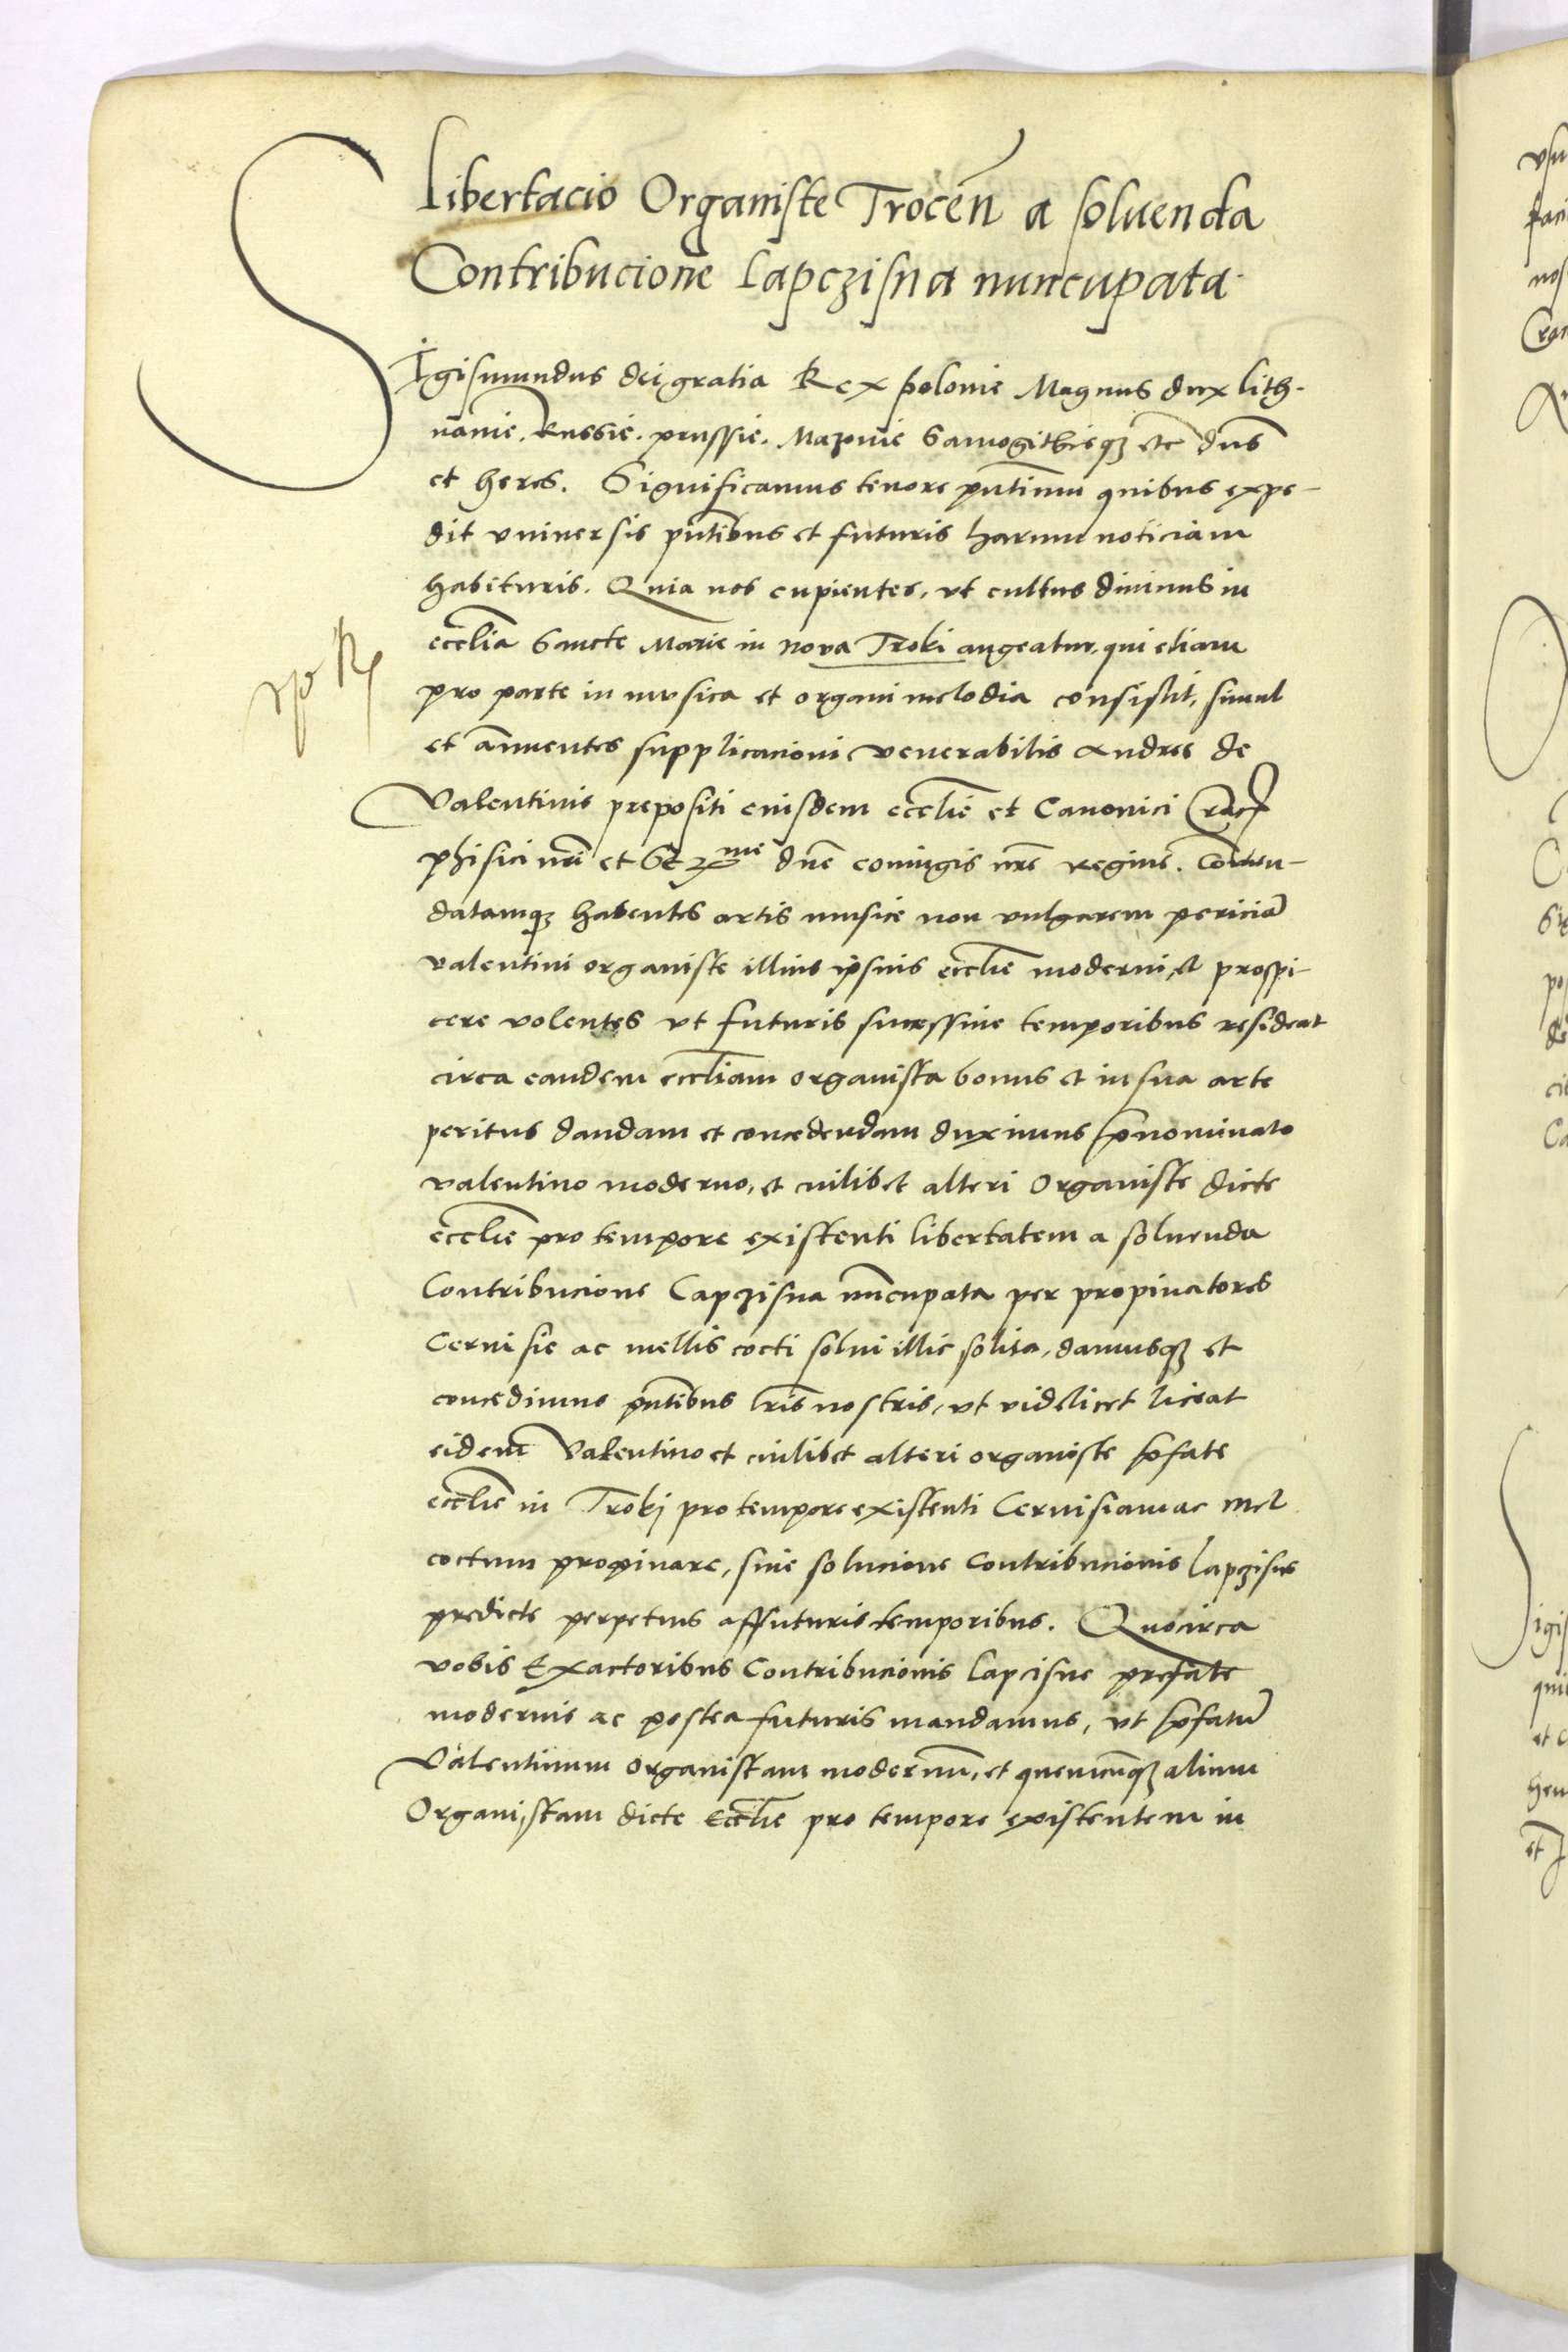 Libertacio Organiste Trocen̄ a soluenda
Contribucione Lapczisna nuncupata.
SIgismundus dei gratia Rex polonie Magnus dux lith-
uanie. Russie. prussie. Mazouie Samogithieqȝ etc̄ dn̄s
et heres. Significamus tenore pn̄tium quibus expe-
dit vniuersis pn̄tibus et futuris harum noticiam
habituris. Quia nos cupientes, vt cultus diuinus in
eccl̄ia Sancte Marie in nova Troki augeatur, qui etiam
pro parte in mvsica et organi melodia consistit, simul
et an̄uentes supplicacioni venerabilis Andree de
Valentinis prepositi eiusdem eccl̄ie et Canonici Crac̄
phisici nr̄i et Se͞rme dn̄e coniugis nr̄e regine. Co͞men-
datamqȝ habentes artis musice non vulgarem pericia͞
valentini organiste illius ipsius eccl̄ie moderni, et prospi-
cere volentes vt futuris successiue temporibus resideat
circa eandem eccl̄iam organista bonus et in sua arte
peritus dandam et concedendam duximus p̄nominato
valentino moderno, et cuilibet alteri Organiste dicte
eccl̄ie pro tempore existenti libertatem a soluenda
Contribucione Capzisna nu͞cupata per propinatores
Ceruisie ac mellis cocti solui illic solita, damusqȝ et
concedimus pn̄tibus lr̄is nostris, vt videlicet liceat
eidem Valentino et cuilibet alteri organiste p̄fate
eccl̄ie in Troki pro tempore existenti Ceruisiam ac mel
coctum propinare, sine solucione contribucionis Lapzisne
predicte perpetuis affuturis temporibus. Quocirca
vobis Exactoribus Contribucionis Lapcisne prefate
modernis ac postea futuris mandamus, vt p̄fatu͞
Valentinum organistam modernu͞, et quemcu͞qȝ alium
Organistam dicte Eccl̄ie pro tempore existentem in